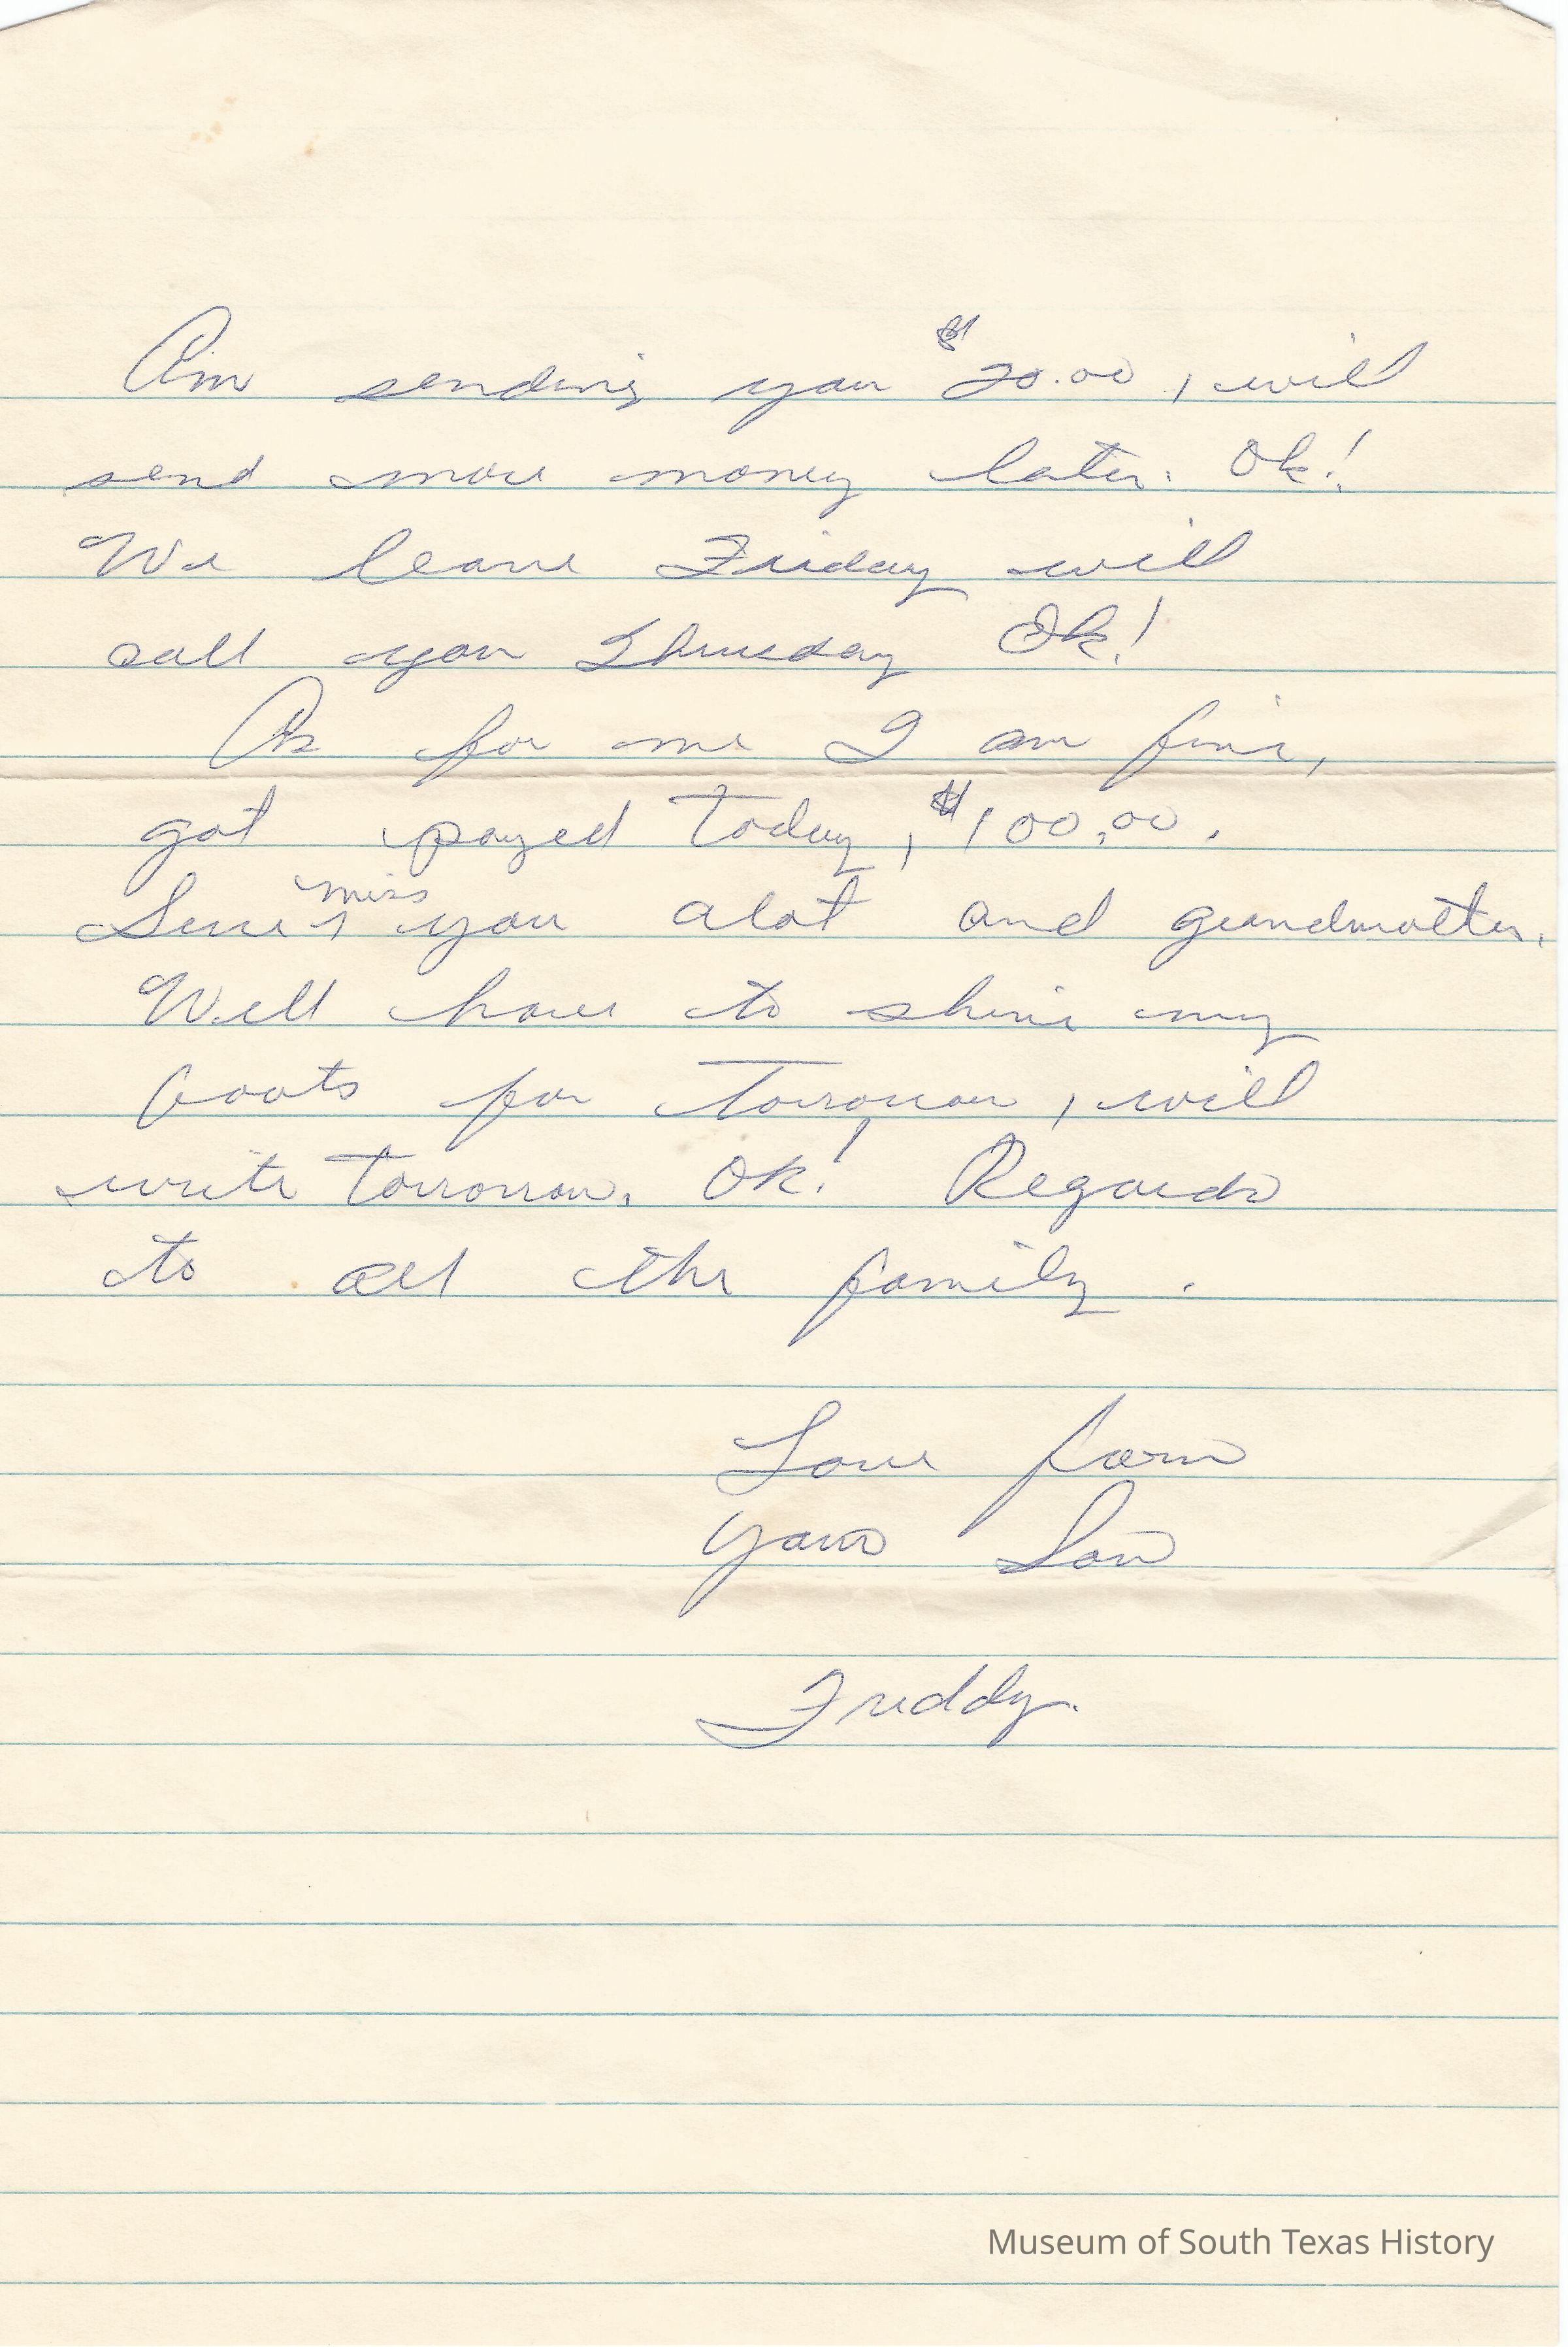 Am sending you $20.00, will
send more money later. Ok!
We leave Friday will
call you Thrusday Ok!
As for me I am fine,
got payed today, $100.00.
Sure miss you alot and grandmother.
Well have to shine my
boots for Torrorow, will
write torrorrow. Ok! Regards
to all the family.
Love form
your Son
Freddy.
Museum of South Texas History